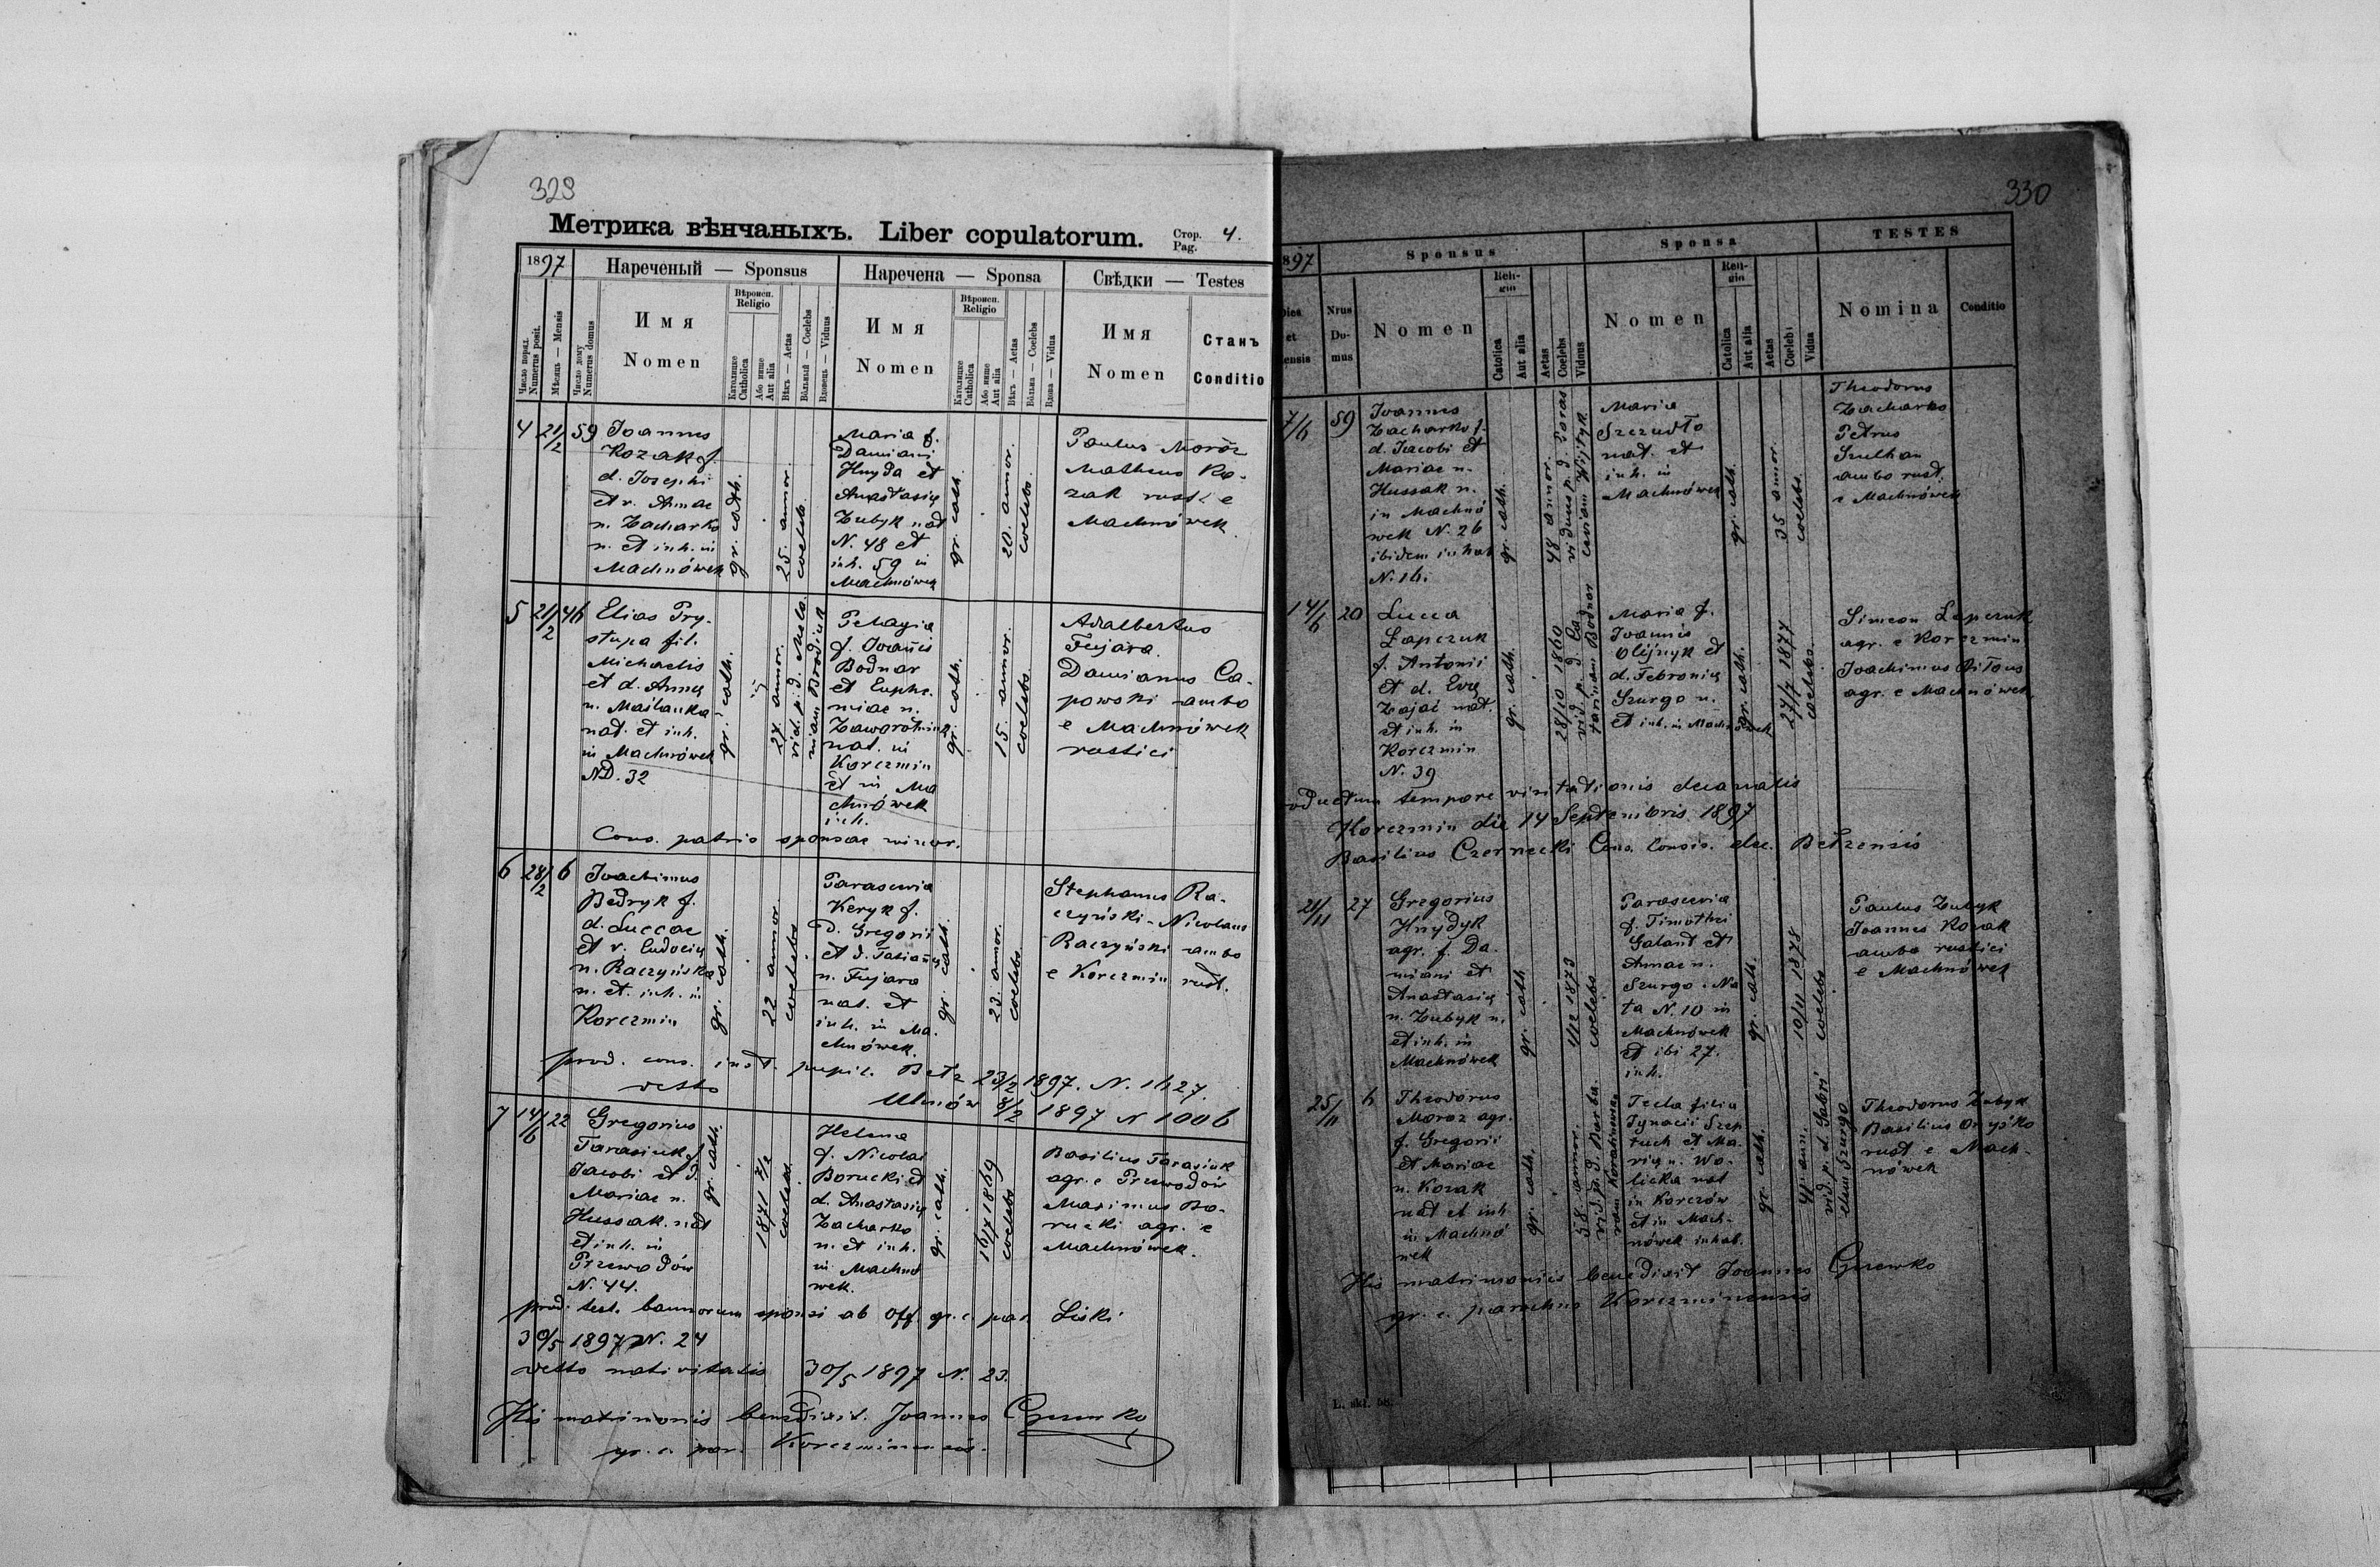 329
Метрика вѣнчаныхъ. Liber copulatorum.
Стор.
Pag. 4.
1897
Нареченый — Sponsus
Наречена — Sponsa
Свѣдки — Testes
Число поряд.
Numerus posit.
Мѣсяць — Mensis
Число дому
Numerus domus
Имя
Nomen
Вѣроисп.
Religio
Католицке
Catholica
Або инше
Aut alia
Вѣкъ — Aetas
Вôльный — Coelebs
Вдовець — Viduus
Имя
Nomen
Вѣроисп.
Religio
Католицке
Catholica
Або инше
Aut alia
Вѣкъ — Aetas
Вôльна — Coelebs
Вдова — Vidua
Имя
Nomen
Станъ
Conditio
4
21/2
59
Joannes
Kozak f.
d. Josephi
et v. Annae
n. Zacharko
n. et inh. in
Machnówek
gr. cath.
25. annor.
coelebs.
Maria f.
Damiani
Hnyda et
Anastasię
Zubyk nat
N. 48 et
inh. 59 in
Machnówek
gr. cath.
20. annor.
coelebs.
Paulus Moróz
Matheus Ko-
zak rust. e
Machnówek.
5
21/2
46
Elias Pry-
stupa fil.
Michaelis
et d. Annę
n. Maślanka
nat. et inh.
in Machnówek
ND. 32
gr. cath.
27 annor.
vid. p. d. Mela-
niam Borodiuk
Pelagia
f. Joannis
Bodnar
et Euphe-
miae n.
Zaworotniuk
nat. in
Korczmin
et in Ma
chnówek
inh.
gr. cath.
15. annor.
coelebs
Adalbertus
Fujara.
Damianus Ca-
powski ambo
e Machnówek
rustici
Cons. patris sponsae minor.
6
28/2
6
Joachimus
Bedryk f.
d. Luccae
et v. Eudocię
n. Raczyńska
n. et. inh. in
Korczmin
gr. cath.
22 annor.
coelebs
Parascevia
Keryk f.
d. Gregorii
et d. Tatianę
n. Fujara
nat. et
inh. in Ma-
chnówek.
gr. cath.
23. annor.
coelebs
Stephanus Ra-
czyński - Nicolaus
Raczyński ambo
e Korczmin rust.
prod. cons. inst. pupil. Bełz 23/2 1897. N. 1627.
detto Uhnów 8/2 1897 N 1006
7
14/6
22
Gregorius
Tarasiuk f.
Jacobi et d.
Mariae n.
Hussak. nat
et inh. in
Przewodów
N. 44.
gr. cath.
1871 2/2
coelebs.
Helena
f. Nicolai
Borucki et
d. Anastasię
Zacharko
n. et inh.
in Machnó
wek.
gr. cath.
16/7 1869
coelebs
Basilius Tarasiuk
agr. e Przewodów
Maximus Bo-
rucki agr. e
Machnówek.
prod. test. bannorum sponsi ab off. gr. c. par. Liski
30/5 1897 N. 24
detto nativitatis 30/5 1897 N. 23.
His matrimoniis benedixit. Joannes
gr. c. par. Korczminensis.
330
1897
Sponsus
Sponsa
TESTES
Dies
et
Mensis
Nrus
Do-
mus
Nomen
Reli-
gio
Catolica
Aut alia
Aetas
Coelebs
Viduus
Nomen
Reli-
gio
Catolica
Aut alia
Aetas
Coelebs
Vidua
Nomina
Conditio
7/6
59
Joannes
Zacharko f.
d. Jacobi et
Mariae n.
Hussak n.
in Machnó
wek N. 26
ibidem inhab
N. 16.
gr. cath.
48 annor.
viduus p. d. Paras
ceviam Wijtyk
Maria
Szczudło
nat. et
inh. in
Machnówek
gr. cath.
35 annor.
coelebs.
Theodorus
Zacharko
Petrus
Szulhan
ambo rust.
e Machnówek
14/6
20
Lucca
Łapczuk
f. Antonii
et d. Evę
Zając nat.
et inh. in
Korczmin
N. 39
gr. cath.
28/10 1860
vid. p. d. Ca
tarinam Bodnar
Maria f.
Joannis
Olijnyk et
d. Febronię
Szurgo n.
et inh. in Machnówek
gr. cath.
27/7 1877
coelebs.
Simeon Łapczuk
agr. e Korczmin
Joachimus Biłous
agr. e Machnówek.
oductum tempore visitationis decanalis
Korczmin die 14 Septembris 1897
Basilius Czernecki Cons. Consis. dec. Bełzensis
21/11
27
Gregorius
Hnydyk
agr. f. Da-
miani et
Anastasię
n. Zubyk n.
et inh. in
Machnówek
gr. cath
1/12 1873
coelebs
Parascevia
f. Timothei
Galant et
Annae n.
Szurgo. Na
ta N. 10 in
Machnówek
et ibi 27.
inh.
gr. cath.
10/11 1878
coelebs
Paulus Zubyk
Joannes Kozak
ambo rustici
e Machnówek
25/11
6
Theodorus
Moroz agr.
f. Gregorii
et Mariae
n. Kozak
nat et inh
in Machnó
wek
gr. cath.
58 annor.
vid. p. d. Barba
ram
Tecla filia
Ignacii Szep
tuch et Ma-
rię n. Wo-
licka nat
in Korczów
et in Mach-
nówek inhab.
gr. cath.
41 ann.
vid. p. d. Gabri
elem Szurgo
Theodorus Zubyk
Basilius Onyśko
rust e Mach-
nówek
His matrimoniis benedixit Joannes
gr. c. parochus Korczminensis